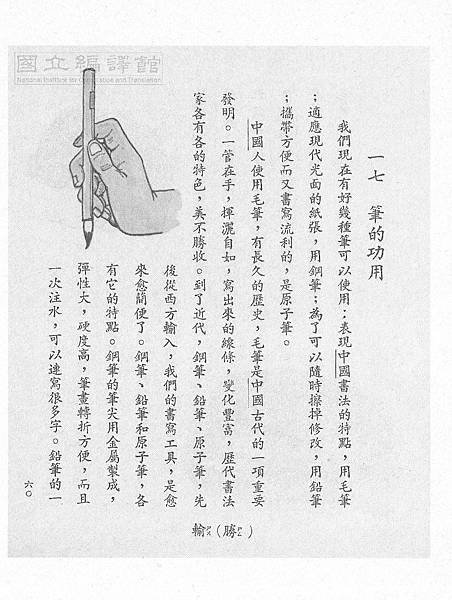 國立編譯館
National Institute for Compilation and Translation
一七　筆的功用
我們現在有好幾種筆可以使用：表現中國書法的特點，用毛筆
；適應現代光面的紙張，用鋼筆；為了可以隨時擦掉修改，用鉛筆
；攜帶方便而又書寫流利的，是原子筆。
中國人使用毛筆，有長久的歷史，毛筆是中國古代的一項重要
發明。一管在手，揮灑自如，寫出來的線條，變化豐富，歷代書法
家各有各的特色，美不勝收。到了近代，鋼筆、鉛筆、原子筆，先
後從西方輸入，我們的書寫工具，是愈
來愈簡便了。鋼筆、鉛筆和原子筆，各
有它的特點。鋼筆的筆尖用金屬製成，
彈性大，硬度高，筆畫轉折方便，而且
一次注水，可以連寫很多字。鉛筆的一
(勝ㄕㄥ)
輸ㄕㄨ
六〇